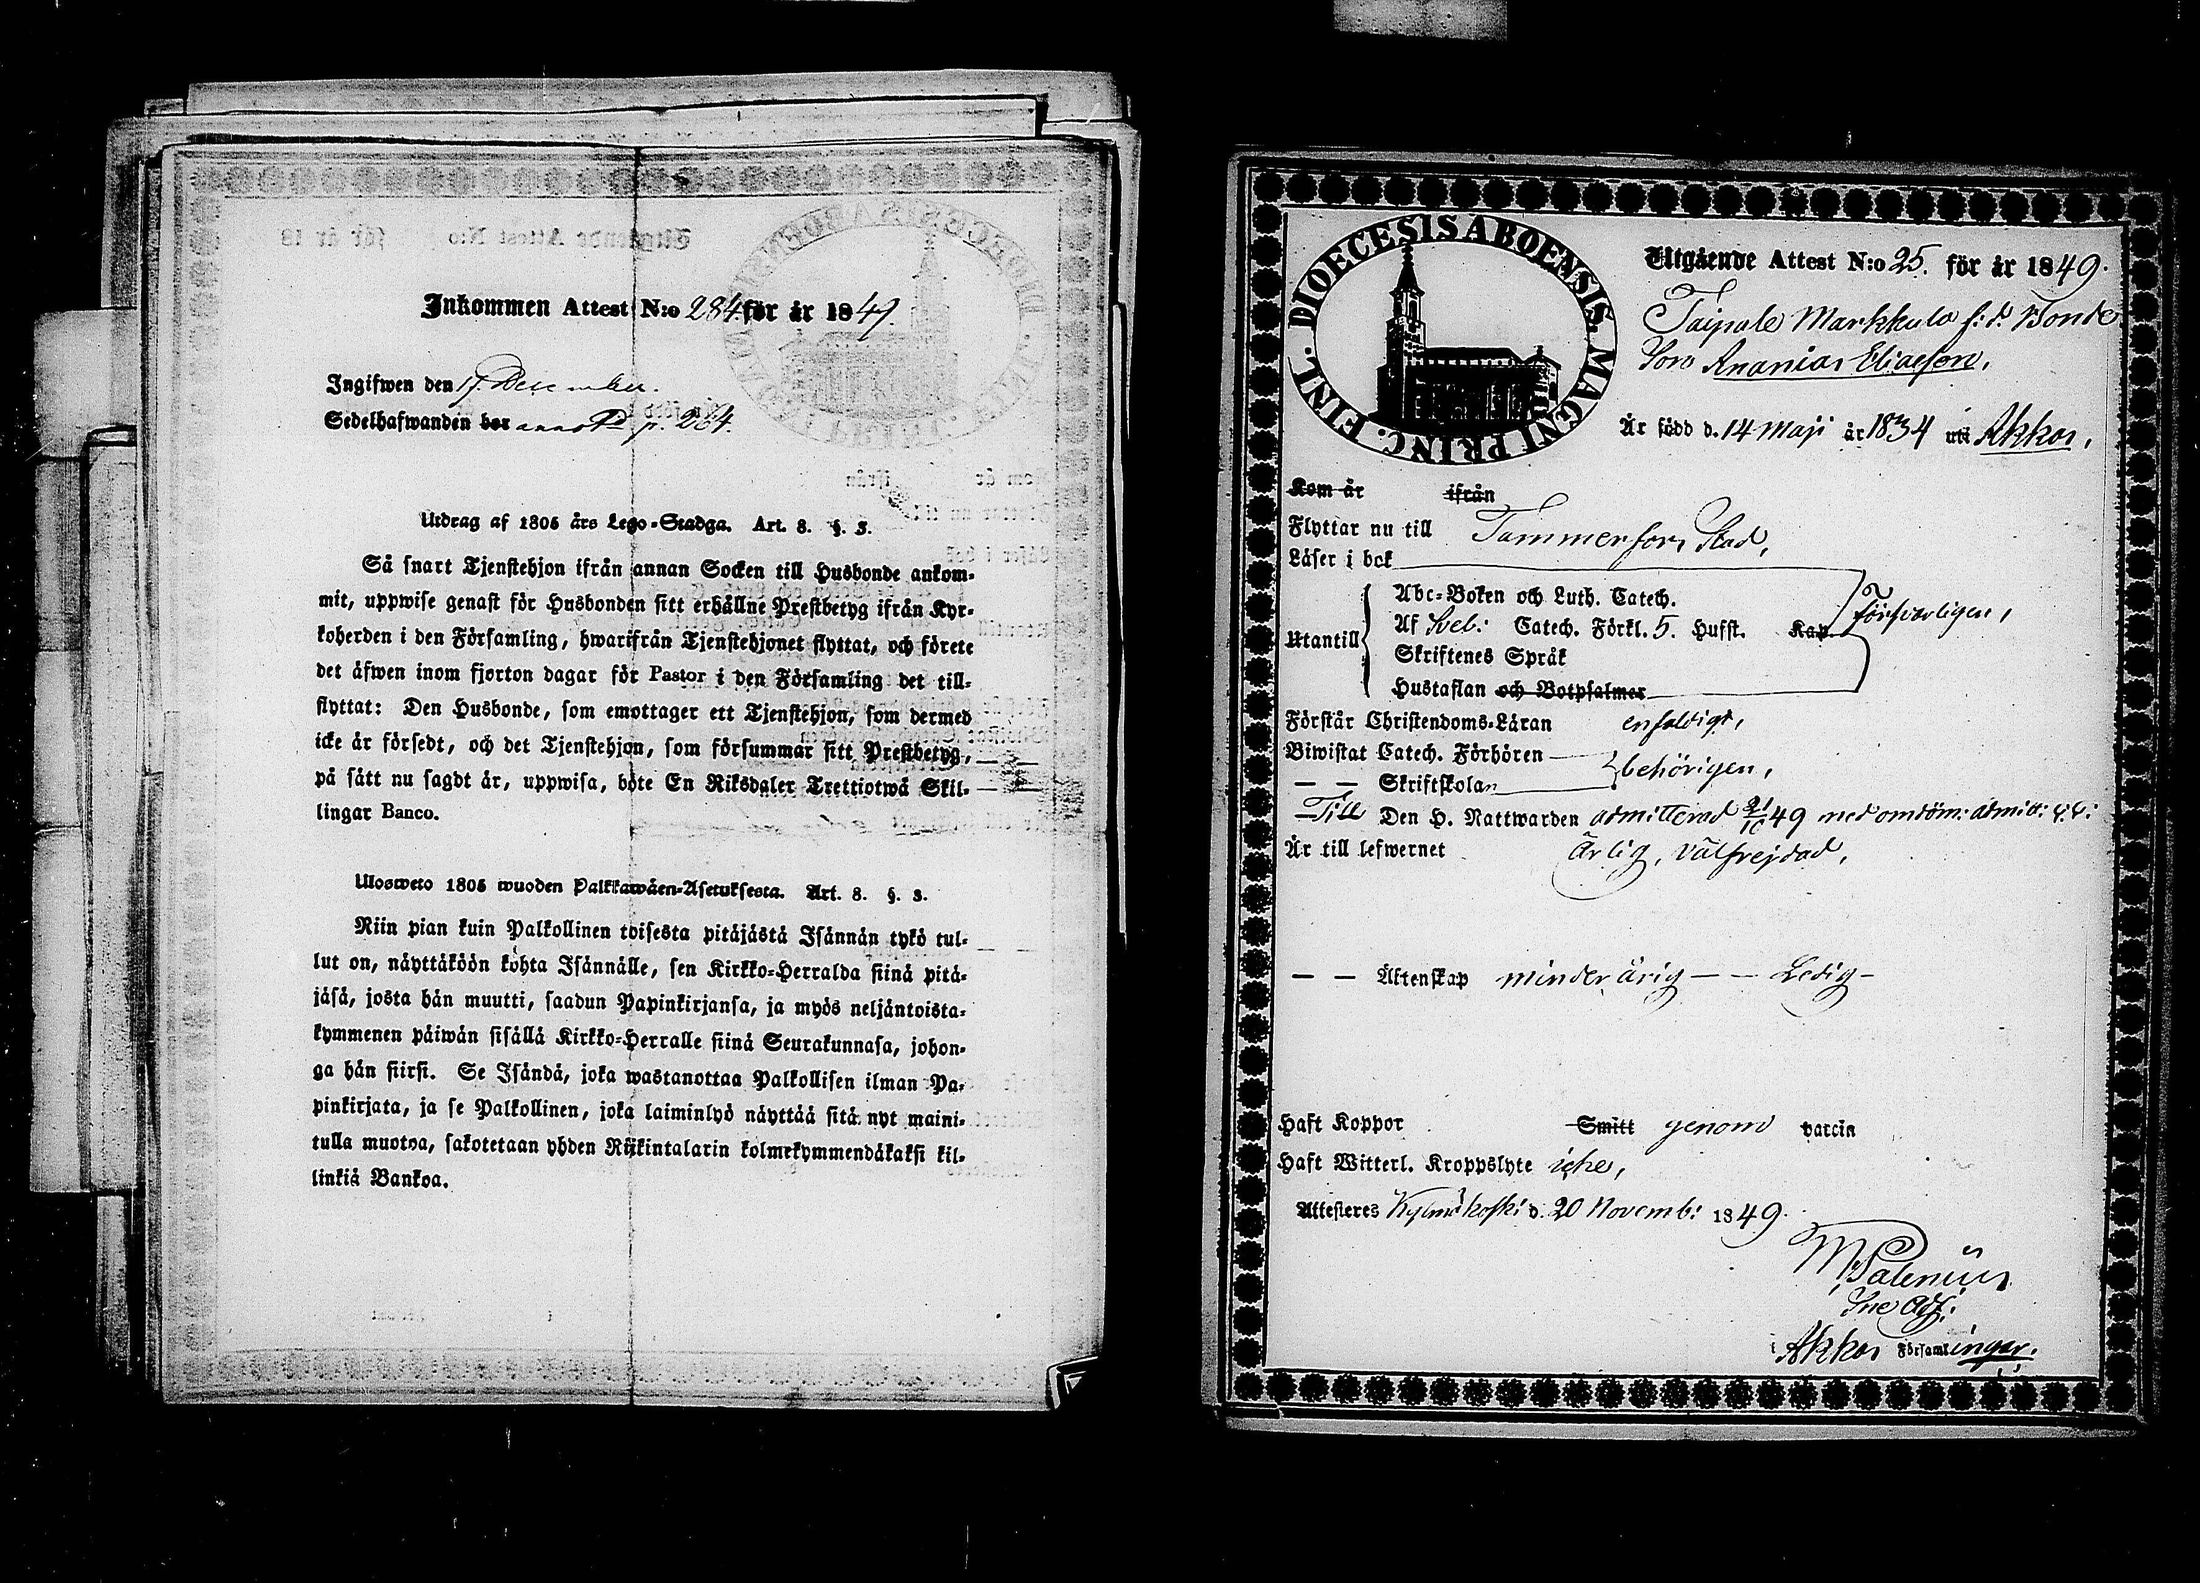 Inkommen Attest N:o 284 för år 1849.
Ingifwen den 17 December.
Sedelhafwanden bor annot. p. 264.
Utdrag af 1805 års Lego-Stadga. Art. 8. §. 3.
Så snart Tjenstehjon ifrån annan Socken till Husbonde ankom-
mit, uppwise genast för Husbonden sitt erhållne Prestbetyg ifrån Kyr-
koherden i den Församling, hwarifrån Tjenstehjonet flyttat, och förete
det äfwen inom fjorton dagar för Pastor i den Församling det till-
flyttat: Den Husbonde, som emottager ett Tjenstehjon, som dermed
icke är försedt, och det Tjenstehjon, som försummar sitt Prestbetyg,
på sätt nu sagdt är, uppwisa, böte En Riksdaler Trettiotwå Skil-
lingar Banco.
Ulosweto 1805 wuoden Palkkawäen-Asetuksesta. Art. 8. §. 3.
Niin pian kuin Palkollinen toisesta pitäjästä Isännän tykö tul-
lut on, näyttäköön kohta Isännälle, sen Kirkko-Herralda siinä pitä-
jäsä, josta hän muutti, saadun Papinkirjansa, ja myös neljäntoista-
kymmenen päiwän sisällä Kirkko-Herralle siinä Seurakunnasa, johon-
ga hän siirsi. Se Isändä, joka wastanottaa Palkollisen ilman Pa-
pinkirjata, ja se Palkollinen, joka laiminlyö näyttää sitä nyt maini-
tulla muotoa, sakotetaan yhden Riikintalarin kolmekymmendäkaksi kil-
linkiä Bankoa.
DIOECESIS ABOENSIS. MAGNI PRINC. FINL.
Utgående Attest N:o 25. för år 1849.
Taipale Markkula f: d. Bonde
Son Ananias Eliaeson,
Är född d. 14 Maji år 1834 uti Akkas,
Kom år ifrån
Flyttar nu till Tammerfors Stad,
Läser i bok
Utantill
Abc-Boken och Luth. Catech.
Af Sveb: Catech. Förkl. 5. Hufst. Kap. Försvarligen,
Skriftenes Språk
Hustaflan och Botpsalmer
Förstår Christendoms-Läran enfaldigt,
Biwistat Catech. Förhören
— — Skriftskolan behörigen,
Till Den H. Nattwarden admitterad 21/10 49 med omdöm: admitt:
Är till lefwernet Ärlig, välfrejdad,
— — Äktenskap minderårig — — Ledig —
Haft Koppor Smitt genom vaccin
Haft Witterl. Kroppslyte icke,
Attesteres Kylmäkoski d. 20 Novemb: 1849.
M Palenius
Sne Adj:
i Akkas Församlingar.